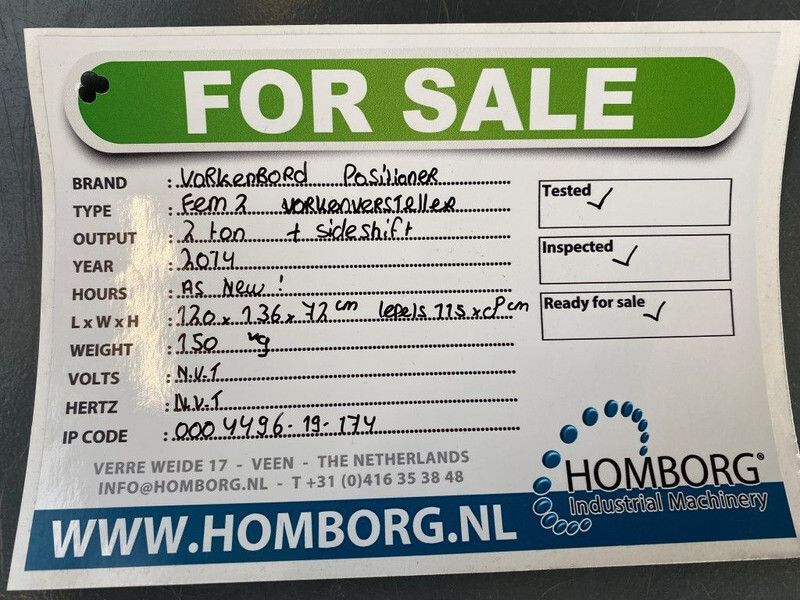 FOR SALE
BRAND : Vorkenbord Positioner
TYPE : Fem 2 vorkenversteller
OUTPUT : 2 ton + sideshift
YEAR : 2014
HOURS : As New !
L x W x H : 120 x 136 x 72 cm lepels 115 x cm
WEIGHT : 150 kg
VOLTS : N.V.T
HERTZ : N.V.T
IP CODE : 000 4496-19-174
Tested ✓
Inspected ✓
Ready for sale ✓
VERRE WEIDE 17 - VEEN - THE NETHERLANDS
INFO@HOMBORG.NL - T +31 (0)416 35 38 48
HOMBORG®
Industrial Machinery
WWW.HOMBORG.NL